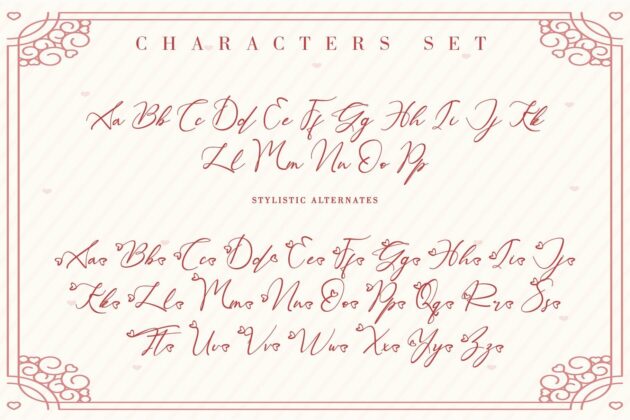 CHARACTERS SET
Aa Bb Cc Dd Ee Ff Gg Hh Ii Jj Kk
Ll Mm Nn Oo Pp
STYLISTIC ALTERNATES
Aa Bb Cc Dd Ee Ff Gg Hh Ii Jj
Kk Ll Mm Nn Oo Pp Qq Rr Ss
Tt Uu Vv Ww Xx Yy Zz